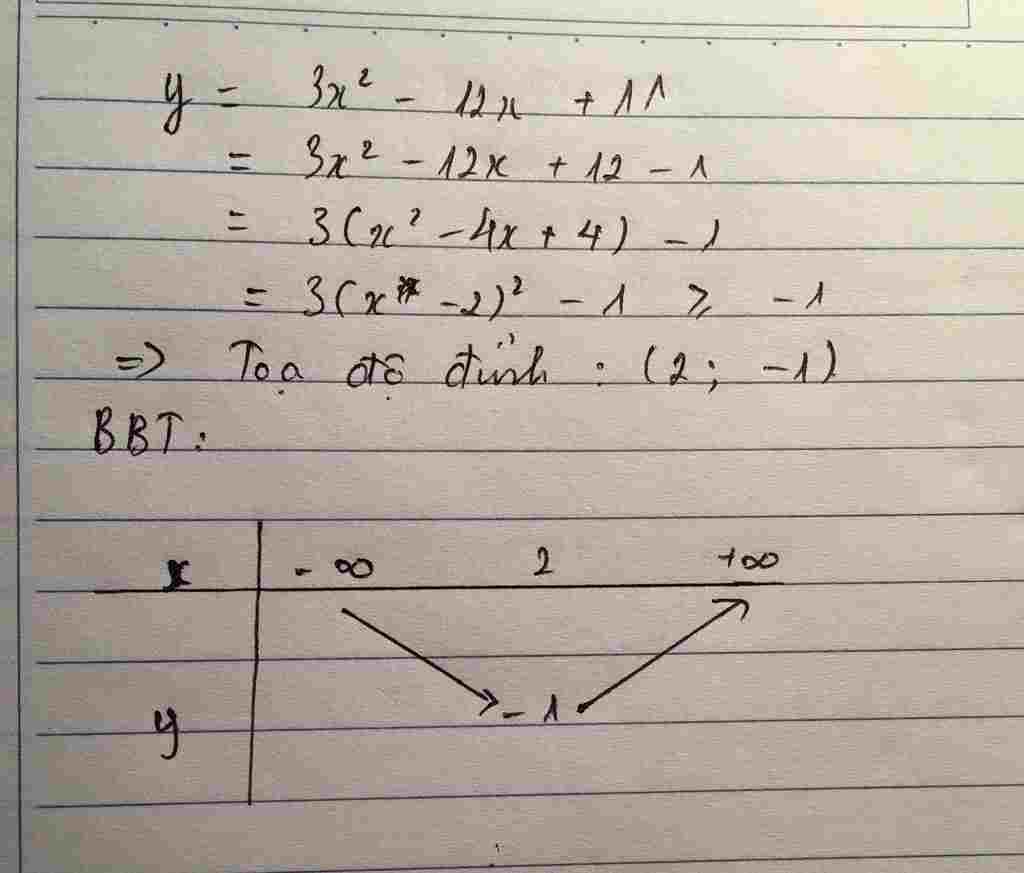 y = 3x² - 12x + 11
= 3x² - 12x + 12 - 1
= 3(x² - 4x + 4) - 1
= 3(x - 2)² - 1 ≥ -1
=> Tọa độ đỉnh : (2; -1)
BBT:
x -∞ 2 +∞
y -1